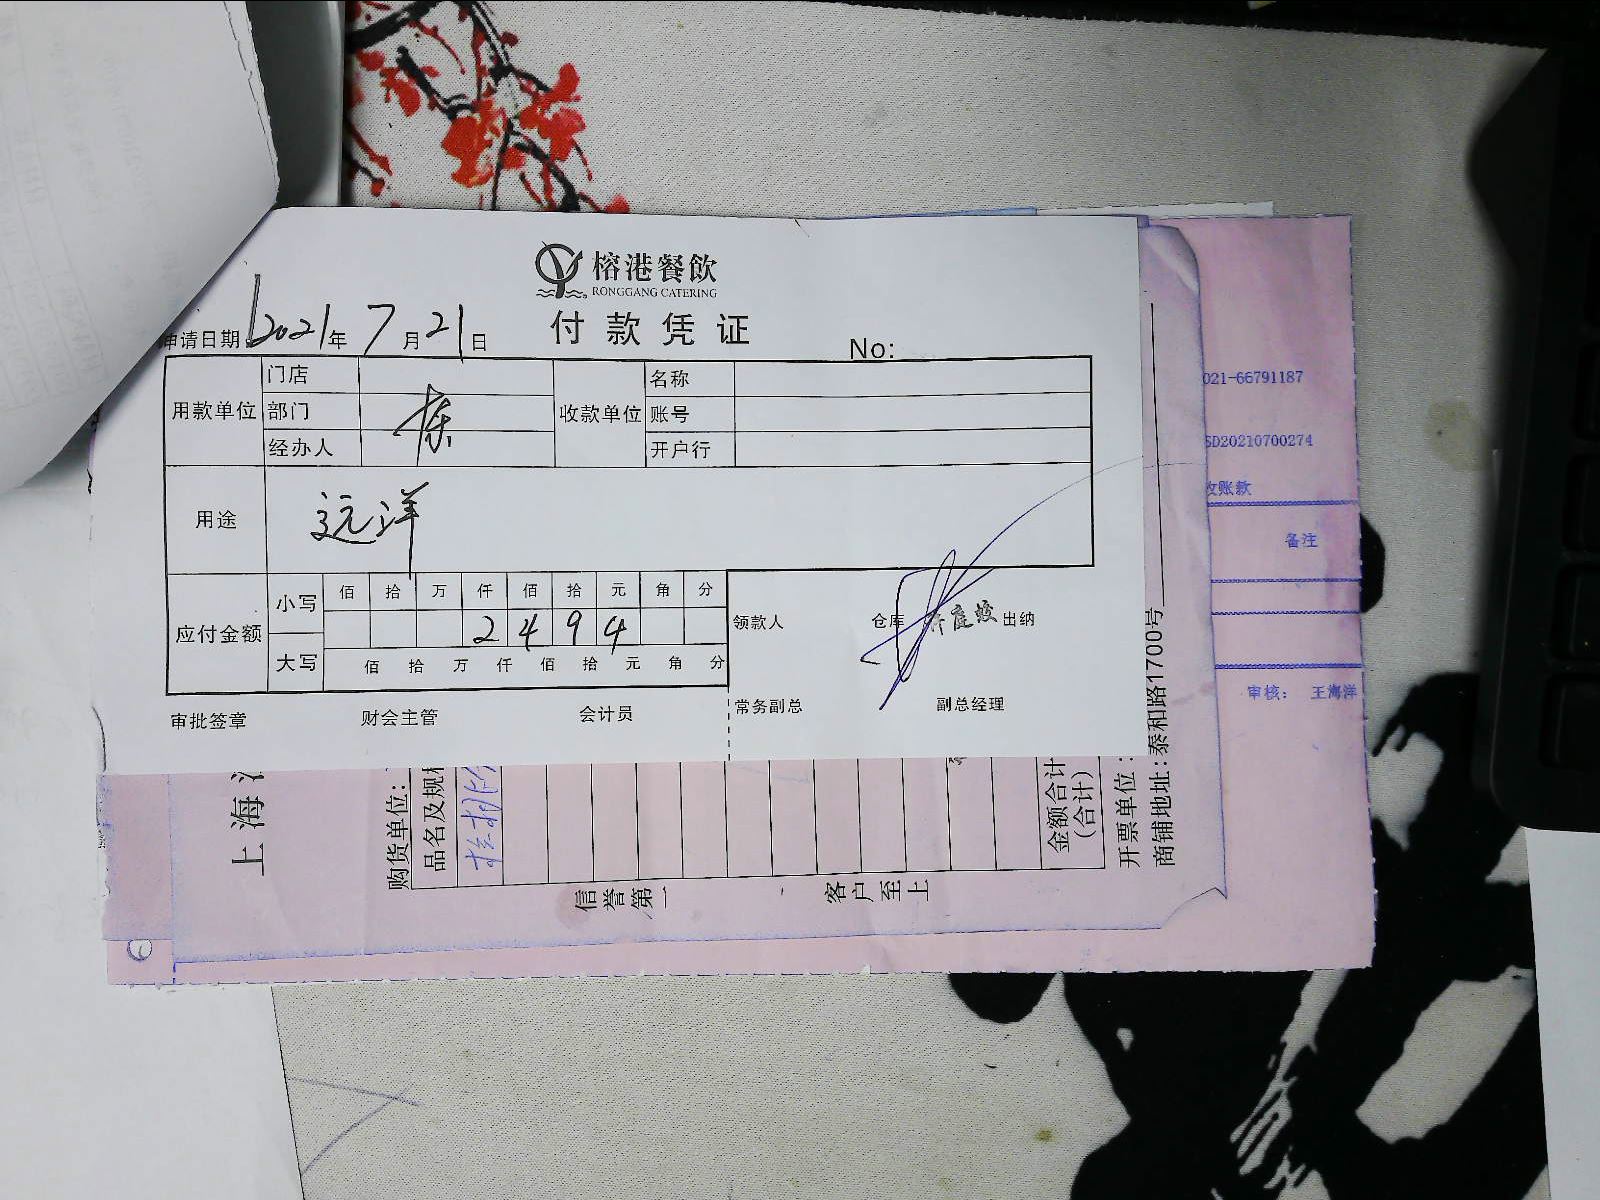 榕港餐飲
RONGGANG CATERING
付款凭证
申请日期: 2021年7月21日
No:
用款单位 门店 收款单位 名称
部门 栋 账号
经办人 开户行
用途 远洋
应付金额 小写 佰 拾 万 仟 佰 拾 元 角 分
2 4 9 4
大写 佰 拾 万 仟 佰 拾 元 角 分
领款人 仓库 出纳
审批签章 财会主管 会计员 常务副总 副总经理
021-66791187
SD20210700274
收账款
备注
审核: 王海洋
上海
购货单位:
品名及规格
金额合计
(合计)
开票单位:
商铺地址:泰和路1700号
信誉第一
客户至上